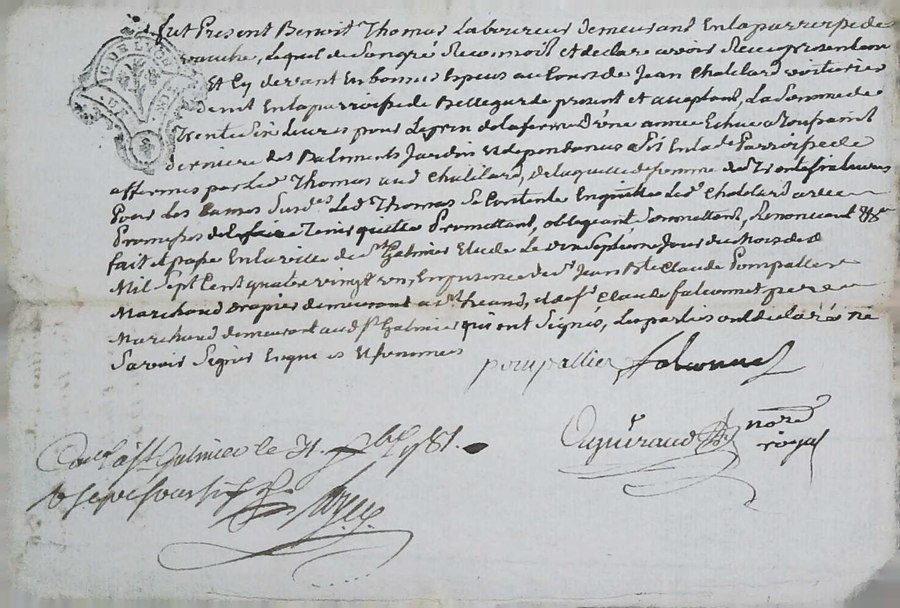 fut Présent Benoit Thomas Laboureur demeurant En la parroisse de
lequel de Son gré Reconnoit et declare avoir Reçu présentement
Et Cy devant En bonnes Espèces au Cours de Jean Chalelard voiturier
demt En la parroisse de Bellegarde présent et acceptant, La Somme de
trente Six Livres pour Le prix de la ferme D'une année Echue a Toussaint
derniere des Batiments Jardin Et dependances a Sis En lade Parroisse de
affermés par Led Thomas aud Chalelard, de laquelle ditte Somme de Trente Six livres
Pour Les Causes Susdes Led Thomas Se Contente En quitte Led Chalelard avec
Promesses de le faire Tenir quitte Promettant, obligeant Soumettant, Renonceant
fait Et passé En la ville de St Galmier Etude Le dix Septieme Jour du Mois de
Mil Sept Cent quatre vingt un, En presence de Sr Jean Bte Claude Pompallier
Marchand drapier demeurant a et de Sr Claude falconnet pere
Marchand demeurant aud St Galmier qui ont Signés, Les parties ont déclaré ne
Savoir Signer Enquis Et Sommés
pompallier falconnet
Guiraud nore
royal
Conlé a St Galmier le 31 1781